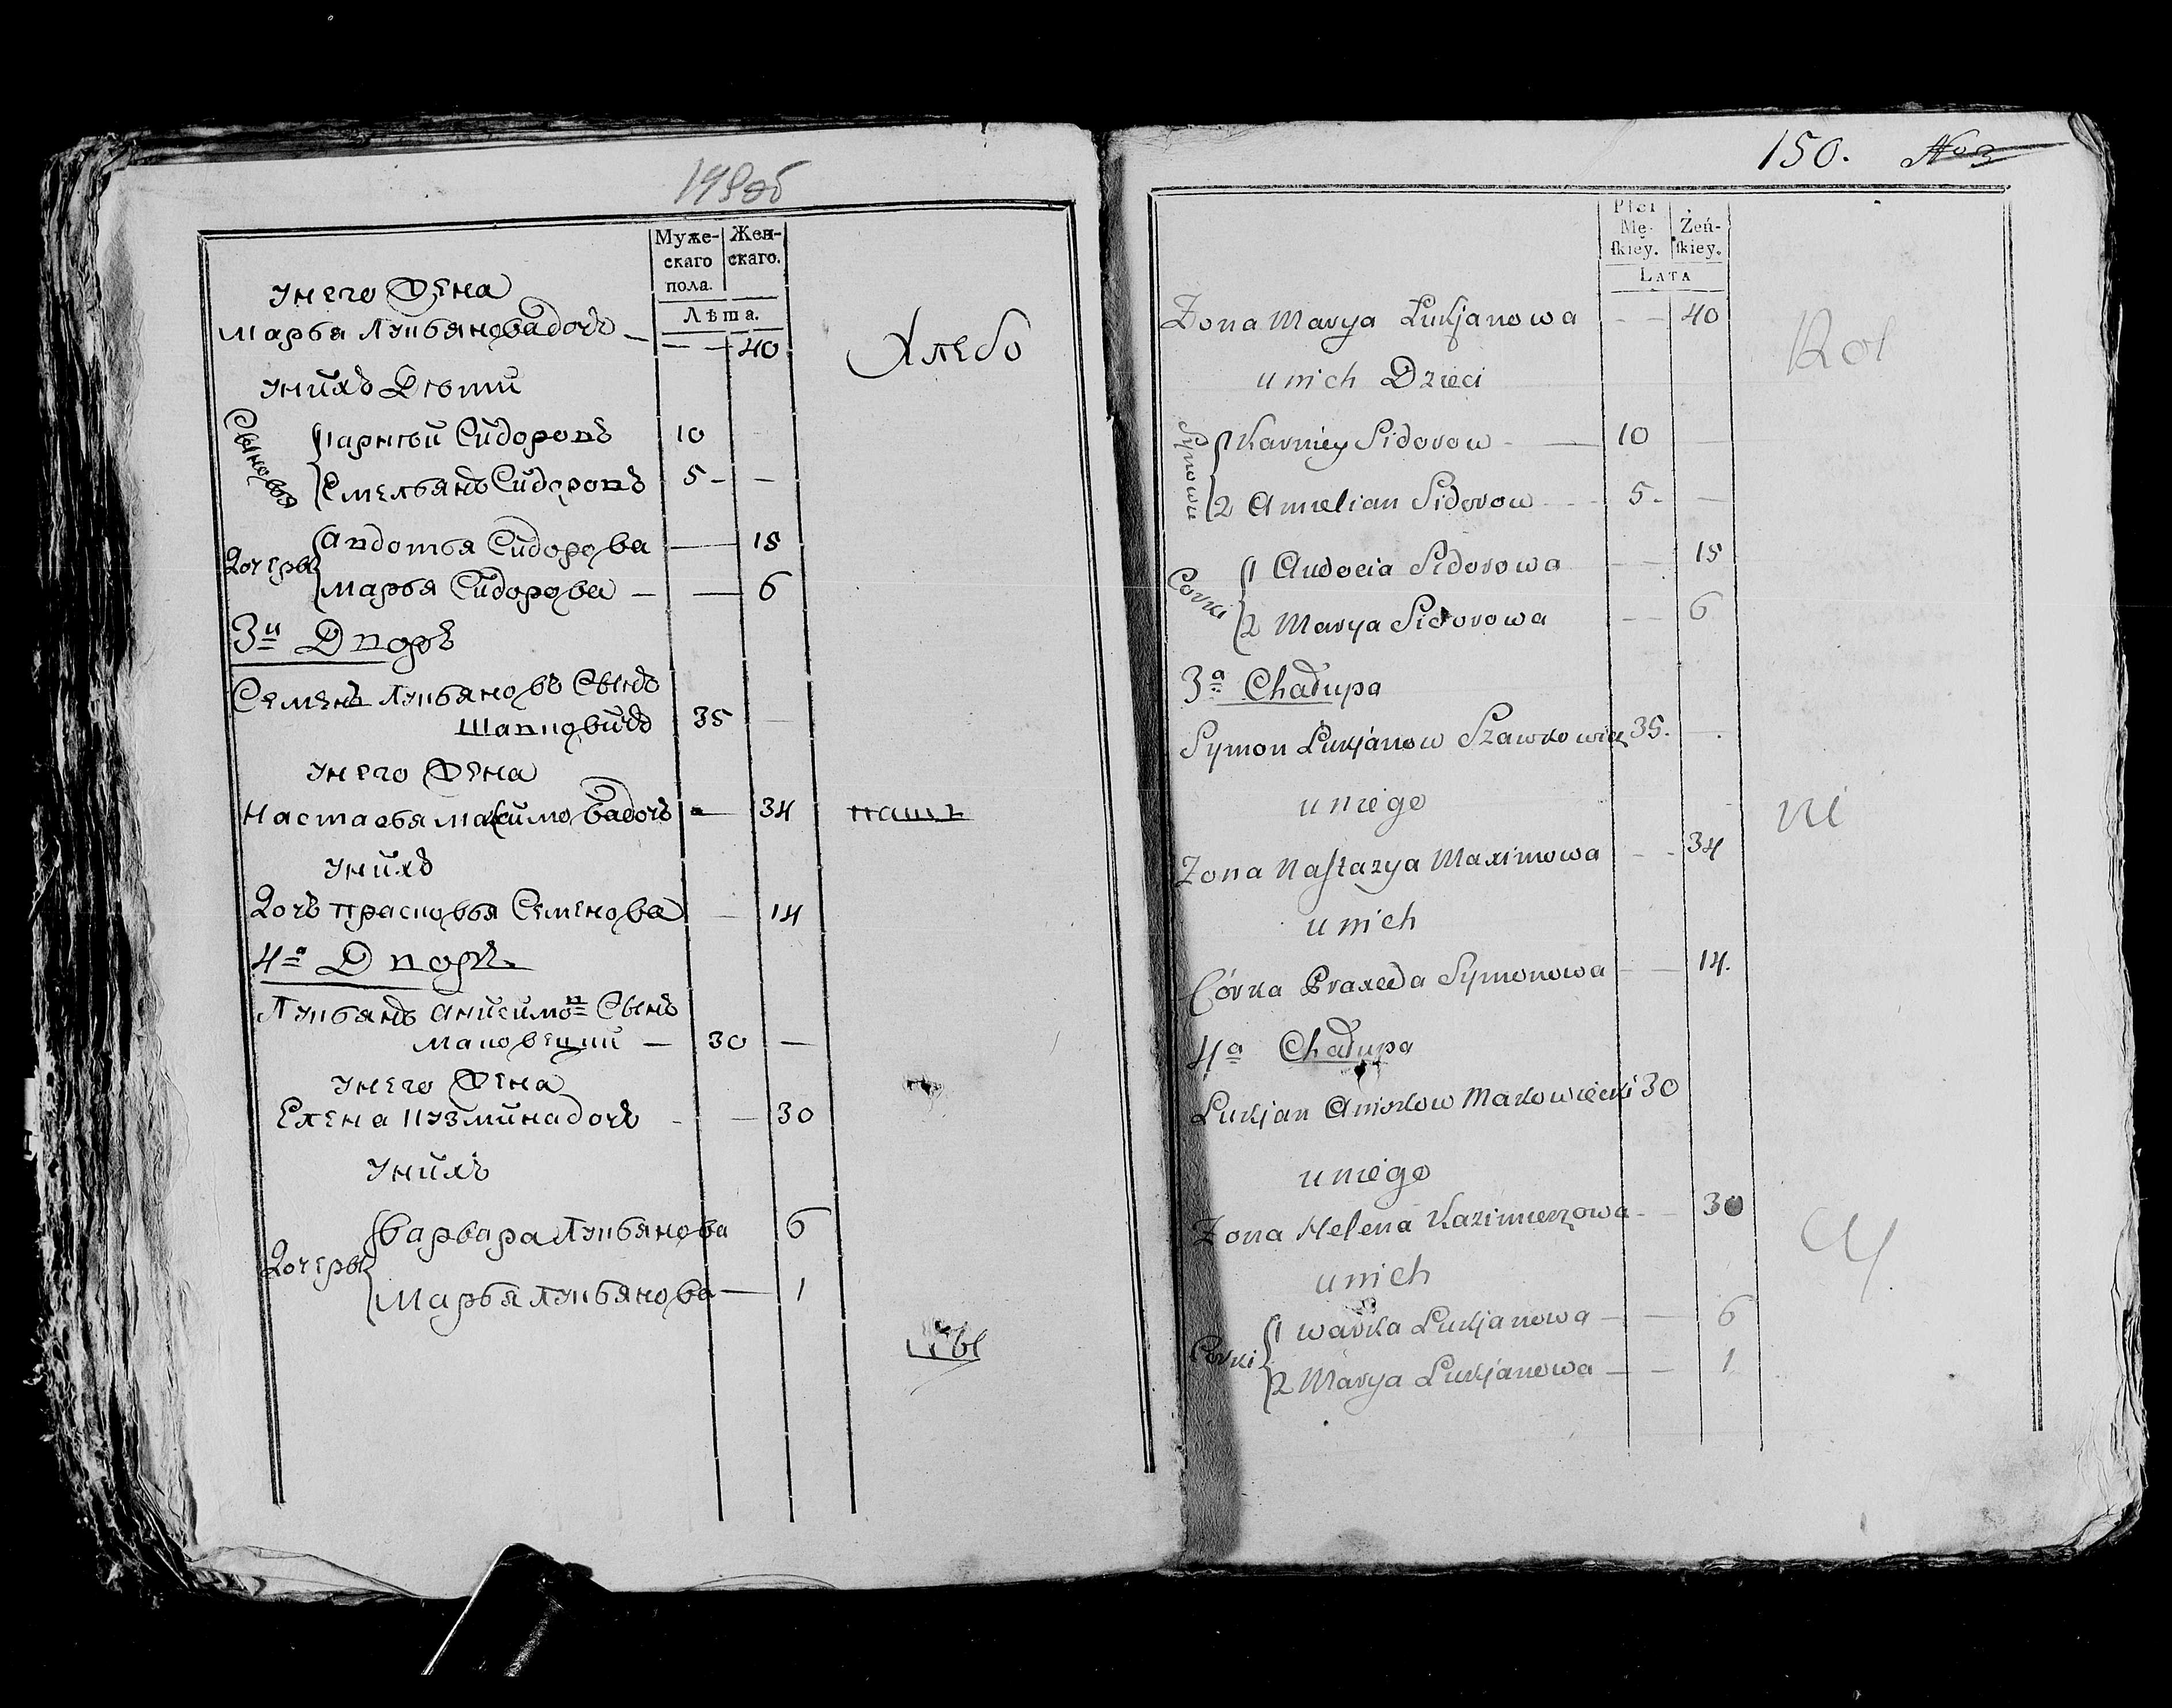 149 об
Муже-
скаго
пола.
Жен-
скаго.
Лѣта.
унего жена
Марья Лукьянова дочь — — — 40
Хлебо
унихъ Дѣти
Сыновья
Карнѣй Сидоровъ 10
Емельянъ Сидоровъ 5 - —
Дочеры
Авдотья Сидорова — 15
Марья Сидорова — — 6
3й Дворъ
Семенъ Лукьяновъ Сынъ
Шавковичь 35 —
унего жена
Настасья Максимова дочь — 34
паш
унихъ
Дочь Прасковья Семенова — 14
4а Дворъ
Лукьянъ Анисимовъ Сынъ
Маковецкий — 30 —
унего жена
Елена Кузмина дочь - — 30
унихъ
Дочеры
Варвара Лукьянова 6
Марья Лукьянова — 1
цы
150. No 3
Płci
Mę-
ſkiey.
Żeń-
ſkiey.
LATA
Zona Marya Lukjanowa — — 40
Rol
unich Dzieci
Synowie
1 Karniey Sidorow - — 10 —
2 Amelian Sidorow - - 5. —
Corki
1 Audocia Sidorowa — — 15
2 Marya Sidorowa — — 6
3a Chałupa
Symon Lukjanow Szawkowicz 35. — .
uniego
ni
Zona Naſtazya Maximowa — - 34
unich
Córka Praxeda Symonowa — — 14.
4a Chałupa
Lukjan Anisikow Makowiecki 30
uniego
Zona Helena Kazimierzowa - — 30
cy
unich
Corki
1 Warka Lukjanowa — — 6
2 Marya Lukjanowa — — 1